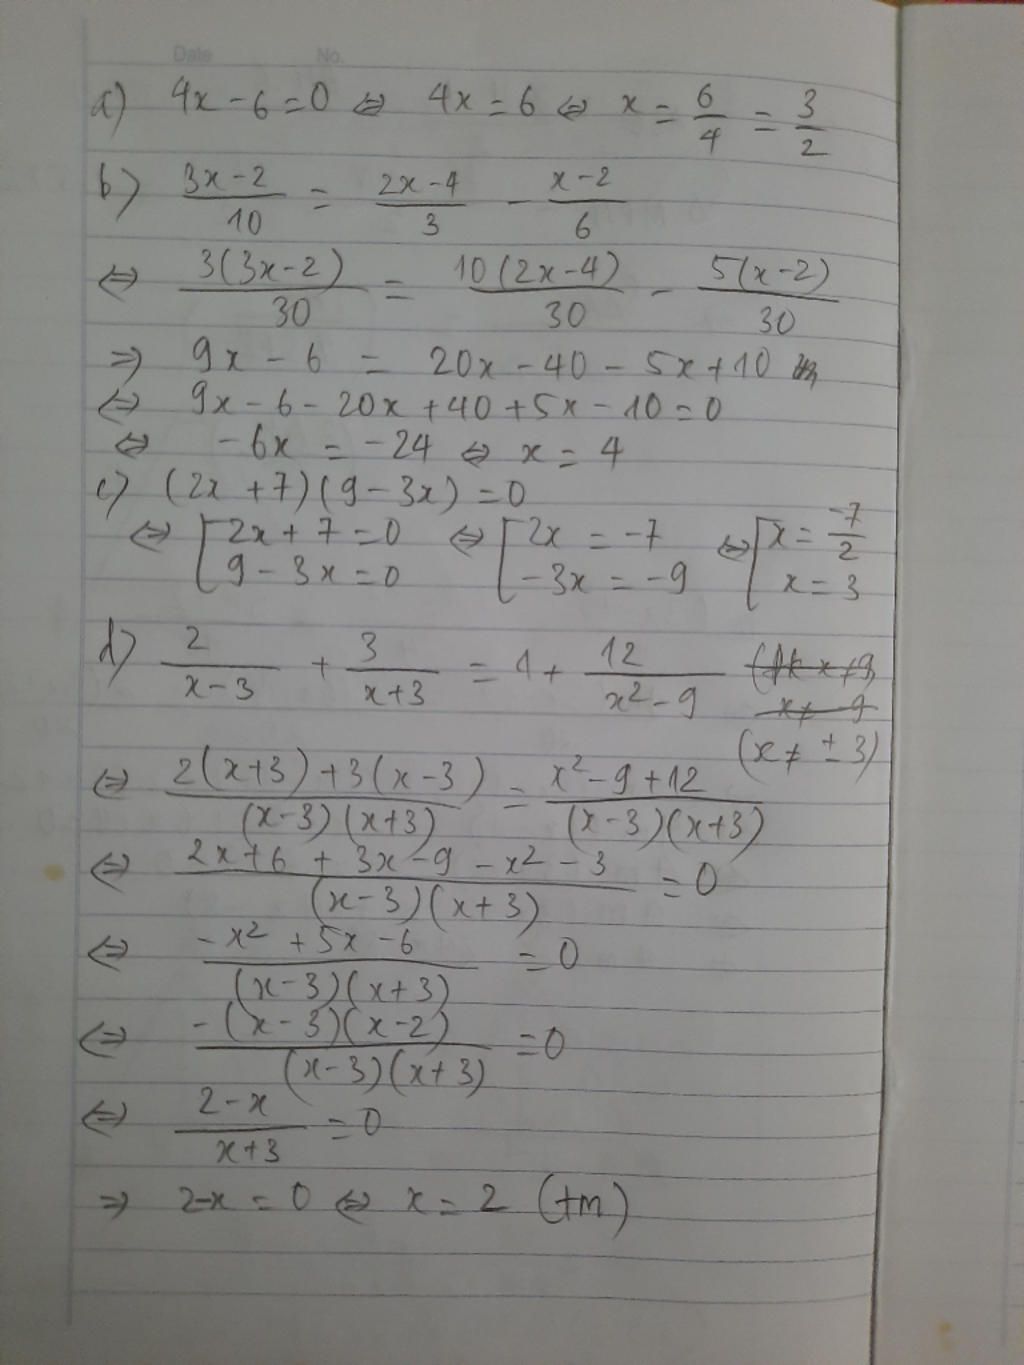 Date No.
a) 4x - 6 = 0 ⇔ 4x = 6 ⇔ x = 6/4 = 3/2
b) (3x-2)/10 = (2x-4)/3 - (x-2)/6
⇔ 3(3x-2)/30 = 10(2x-4)/30 - 5(x-2)/30
⇒ 9x - 6 = 20x - 40 - 5x + 10
⇔ 9x - 6 - 20x + 40 + 5x - 10 = 0
⇔ -6x = -24 ⇔ x = 4
c) (2x + 7)(9 - 3x) = 0
⇔ [2x + 7 = 0 ⇔ [2x = -7 ⇔ [x = -7/2
9 - 3x = 0 -3x = -9 x = 3
d) 2/(x-3) + 3/(x+3) = 1 + 12/(x² - 9)
(x ≠ ± 3)
⇔ (2(x+3) + 3(x-3))/((x-3)(x+3)) = (x² - 9 + 12)/((x-3)(x+3))
⇔ (2x + 6 + 3x - 9 - x² - 3)/((x-3)(x+3)) = 0
⇔ (-x² + 5x - 6)/((x-3)(x+3)) = 0
⇔ (-(x-3)(x-2))/((x-3)(x+3)) = 0
⇔ (2-x)/(x+3) = 0
⇒ 2-x = 0 ⇔ x = 2 (tm)